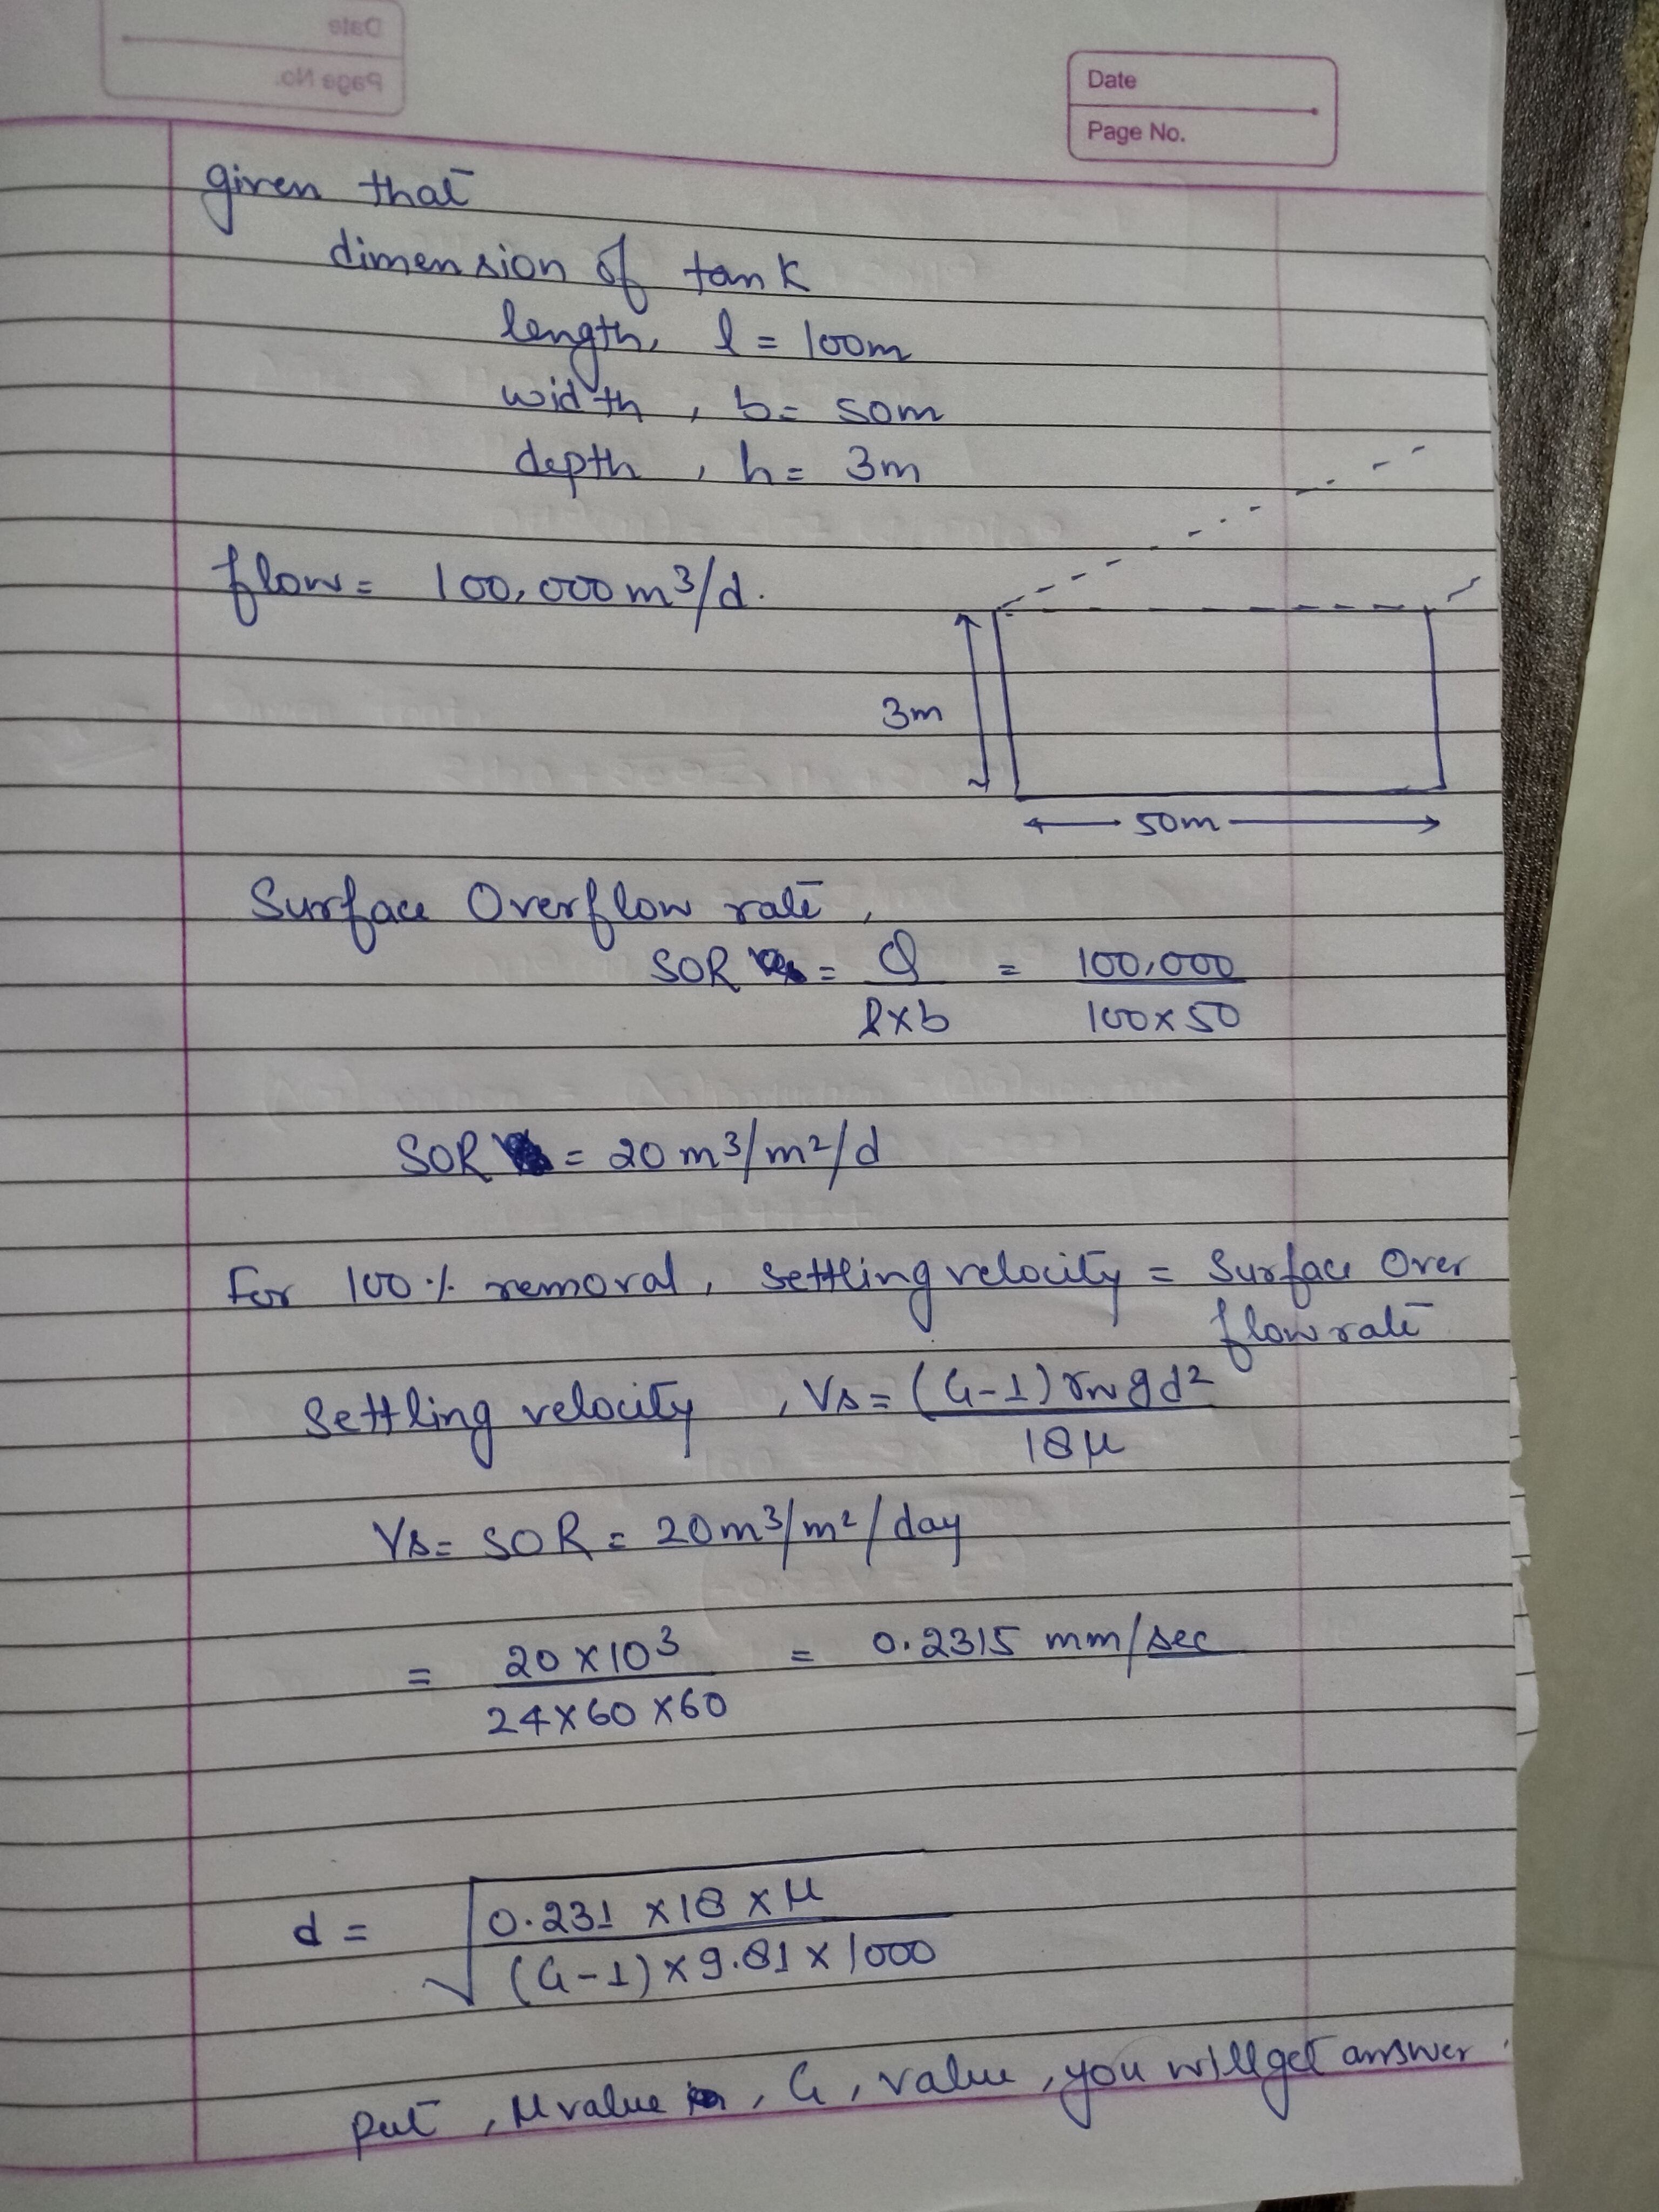 Date
Page No.
Date
Page No.
given that
dimension of tank
length, l = 100m
width, b = 50m
depth, h = 3m
flow = 100,000 m³/d.
3m
50m
Surface Overflow rate,
SOR = Q / l×b = 100,000 / 100×50
SOR = 20 m³/m²/d
For 100% removal, settling velocity = Surface Over
flow rate
Settling velocity, Vs = (G-1) γw g d² / 18μ
Vs = SOR = 20m³/m²/day
= 20×10³ / 24×60×60 = 0.2315 mm/sec
d = √ 0.231 × 18 × μ / (G-1) × 9.81 × 1000
put, μ value, G, value, you will get answer.